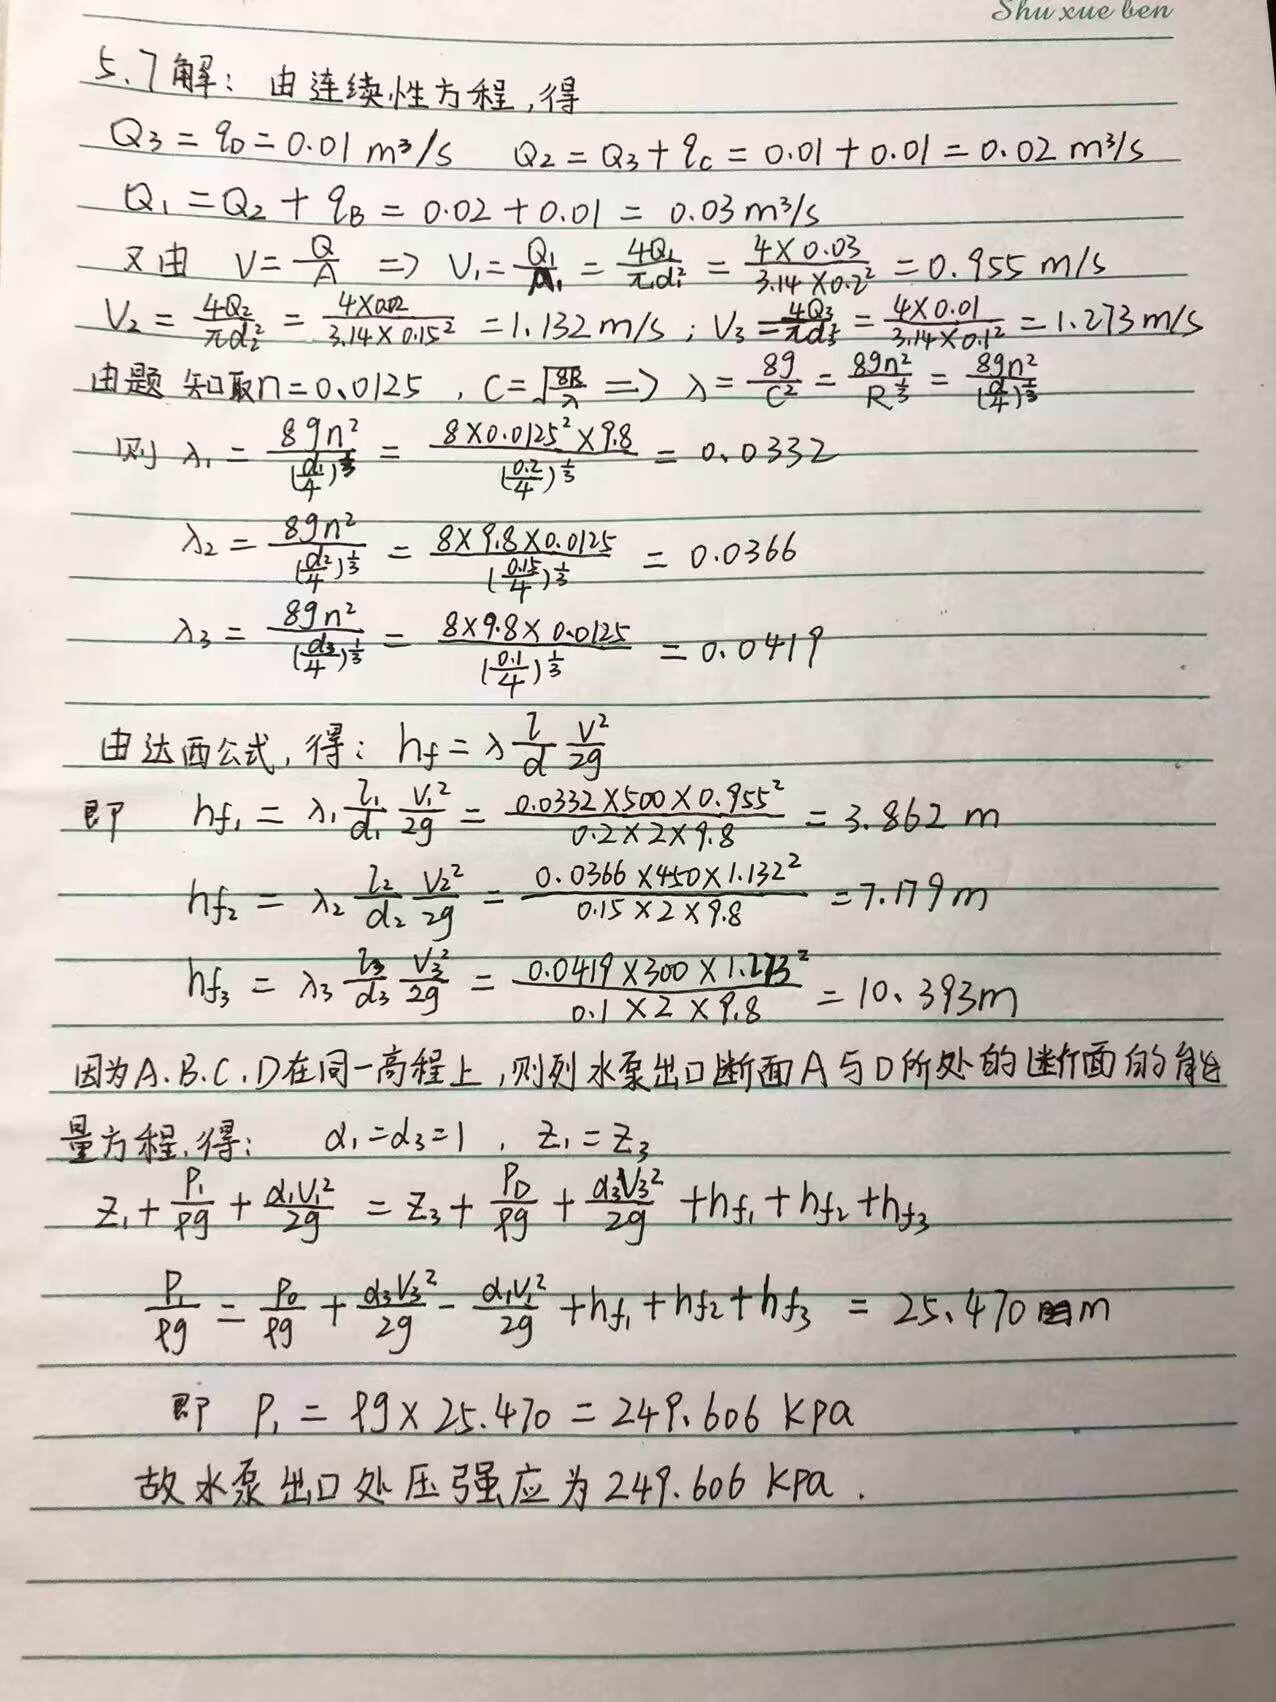 Shu xue ben
5.7解：由连续性方程,得
Q₃ = q_D = 0.01 m³/s Q₂ = Q₃ + q_C = 0.01 + 0.01 = 0.02 m³/s
Q₁ = Q₂ + q_B = 0.02 + 0.01 = 0.03 m³/s
又由 V = Q/A => V₁ = Q₁/A₁ = 4Q₁/πd₁² = 4×0.03/3.14×0.2² = 0.955 m/s
V₂ = 4Q₂/πd₂² = 4×0.02/3.14×0.15² = 1.132 m/s ; V₃ = 4Q₃/πd₃² = 4×0.01/3.14×0.1² = 1.273 m/s
由题知取n = 0.0125 , C = √(8g/λ) => λ = 8g/C² = 8gn²/R^(1/3) = 8gn²/(d/4)^(1/3)
则 λ₁ = 8gn²/(d₁/4)^(1/3) = 8×0.0125²×9.8/(0.2/4)^(1/3) = 0.0332
λ₂ = 8gn²/(d₂/4)^(1/3) = 8×9.8×0.0125/(0.15/4)^(1/3) = 0.0366
λ₃ = 8gn²/(d₃/4)^(1/3) = 8×9.8×0.0125/(0.1/4)^(1/3) = 0.0419
由达西公式,得: h_f = λ l/d V²/2g
即 h_f₁ = λ₁ l₁/d₁ V₁²/2g = 0.0332×500×0.955²/0.2×2×9.8 = 3.862 m
h_f₂ = λ₂ l₂/d₂ V₂²/2g = 0.0366×450×1.132²/0.15×2×9.8 = 7.179 m
h_f₃ = λ₃ l₃/d₃ V₃²/2g = 0.0419×300×1.273²/0.1×2×9.8 = 10.393 m
因为A.B.C.D在同一高程上,则列水泵出口断面A与D所处的断面的能
量方程,得: α₁ = α₃ = 1 , Z₁ = Z₃
Z₁ + P₁/ρg + α₁V₁²/2g = Z₃ + P_D/ρg + α₃V₃²/2g + h_f₁ + h_f₂ + h_f₃
P₁/ρg = P_D/ρg + α₃V₃²/2g - α₁V₁²/2g + h_f₁ + h_f₂ + h_f₃ = 25.470 m
即 P₁ = ρg × 25.470 = 249.606 kPa
故水泵出口处压强应为249.606 kPa.